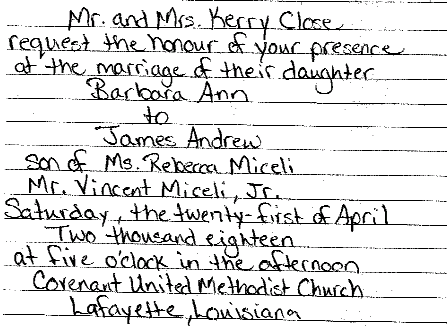 Mr. and Mrs. Kerry Close
request the honour of your presence
at the marriage of their daughter
Barbara Ann
to
James Andrew
son of Ms. Rebecca Miceli
Mr. Vincent Miceli, Jr.
Saturday, the twenty-first of April
Two thousand eighteen
at five o'clock in the afternoon
Covenant United Methodist Church
Lafayette, Louisiana